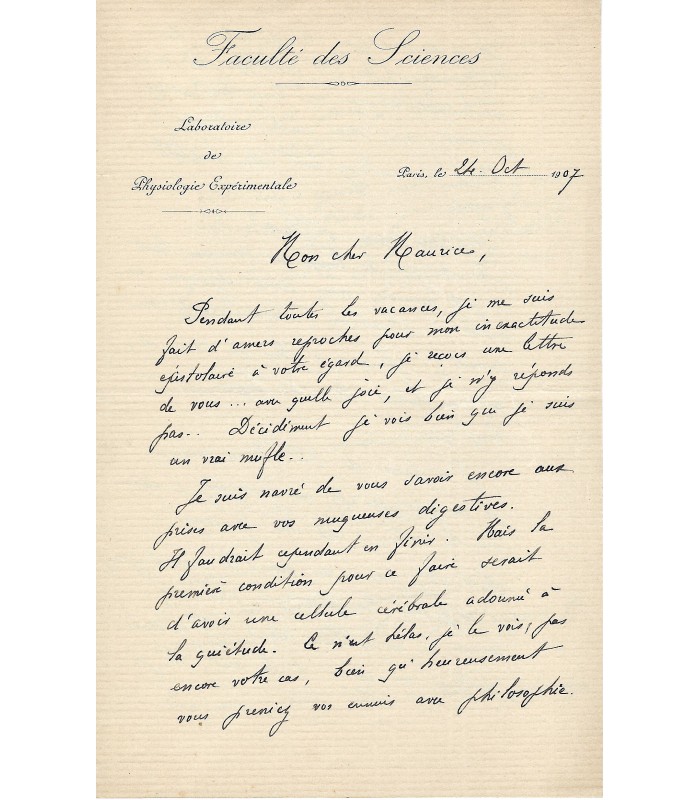 Faculté des Sciences
Laboratoire
de
Physiologie Expérimentale
Paris, le 24 Oct 1907
Mon cher Maurice,
Pendant toutes les vacances, je me suis
fait d'amers reproches pour mon inexactitude
épistolaire à votre égard, je reçois une lettre
de vous... avec quelle joie, et je n'y réponds
pas.. Décidément je vois bien que je suis
un vrai mufle..
Je suis navré de vous savoir encore aux
prises avec vos muqueuses digestives.
Il faudrait cependant en finir. Mais la
première condition pour ce faire serait
d'avoir une cellule cérébrale adonnée à
la quiétude. Ce n'est hélas, je le vois, pas
encore votre cas, bien qu'heureusement
vous preniez vos ennuis avec philosophie.